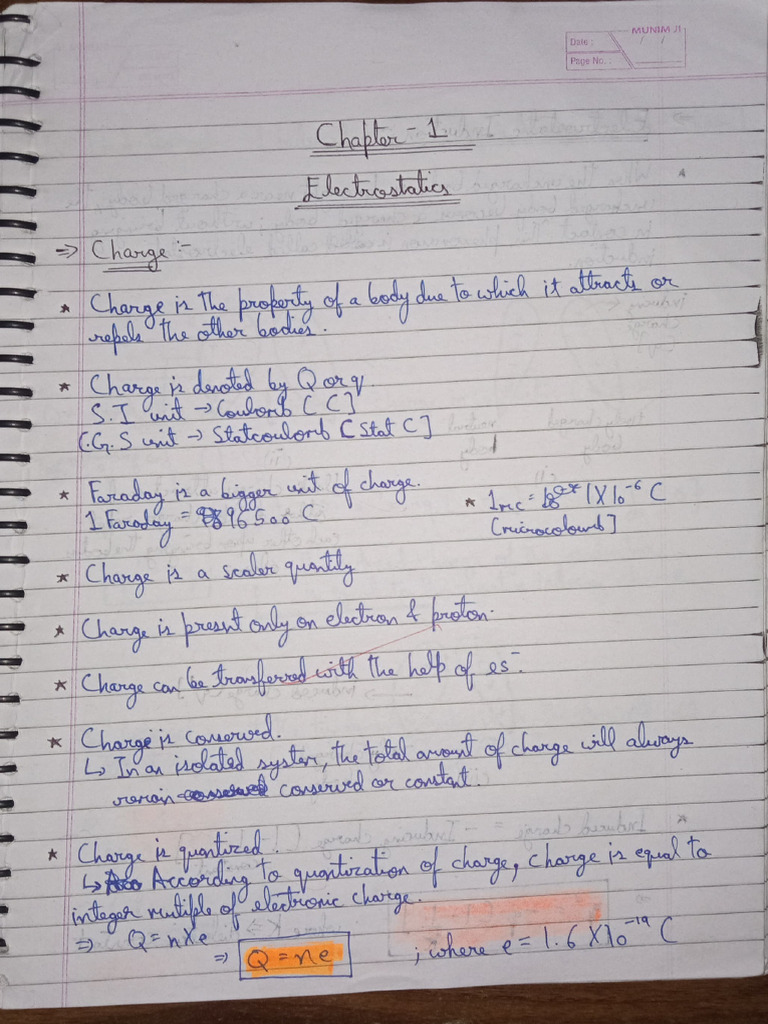 MUNIM JI
Date : / /
Page No. :
Chapter - 1
Electrostatics
⇒ Charge :-
★ Charge is the property of a body due to which it attracts or
repels the other bodies.
★ Charge is denoted by Q or q.
S.I unit → Coulomb [C]
C.G.S unit → Statcoulomb [Stat C]
★ Faraday is a bigger unit of charge.
1 Faraday = 96500 C
★ 1 mc = 1 X 10⁻⁶ C
[microcoloumb]
★ Charge is a scaler quantity
★ Charge is present only on electron & proton.
★ Charge can be transferred with the help of es⁻.
★ Charge is conserved.
↳ In an isolated system, the total amount of charge will always
remain conserved or constant.
★ Charge is quantized.
↳ According to quantization of charge, charge is equal to
integer mutiple of electronic charge.
⇒ Q = n X e
⇒ Q = ne ; where e = 1.6 X 10⁻¹⁹ C